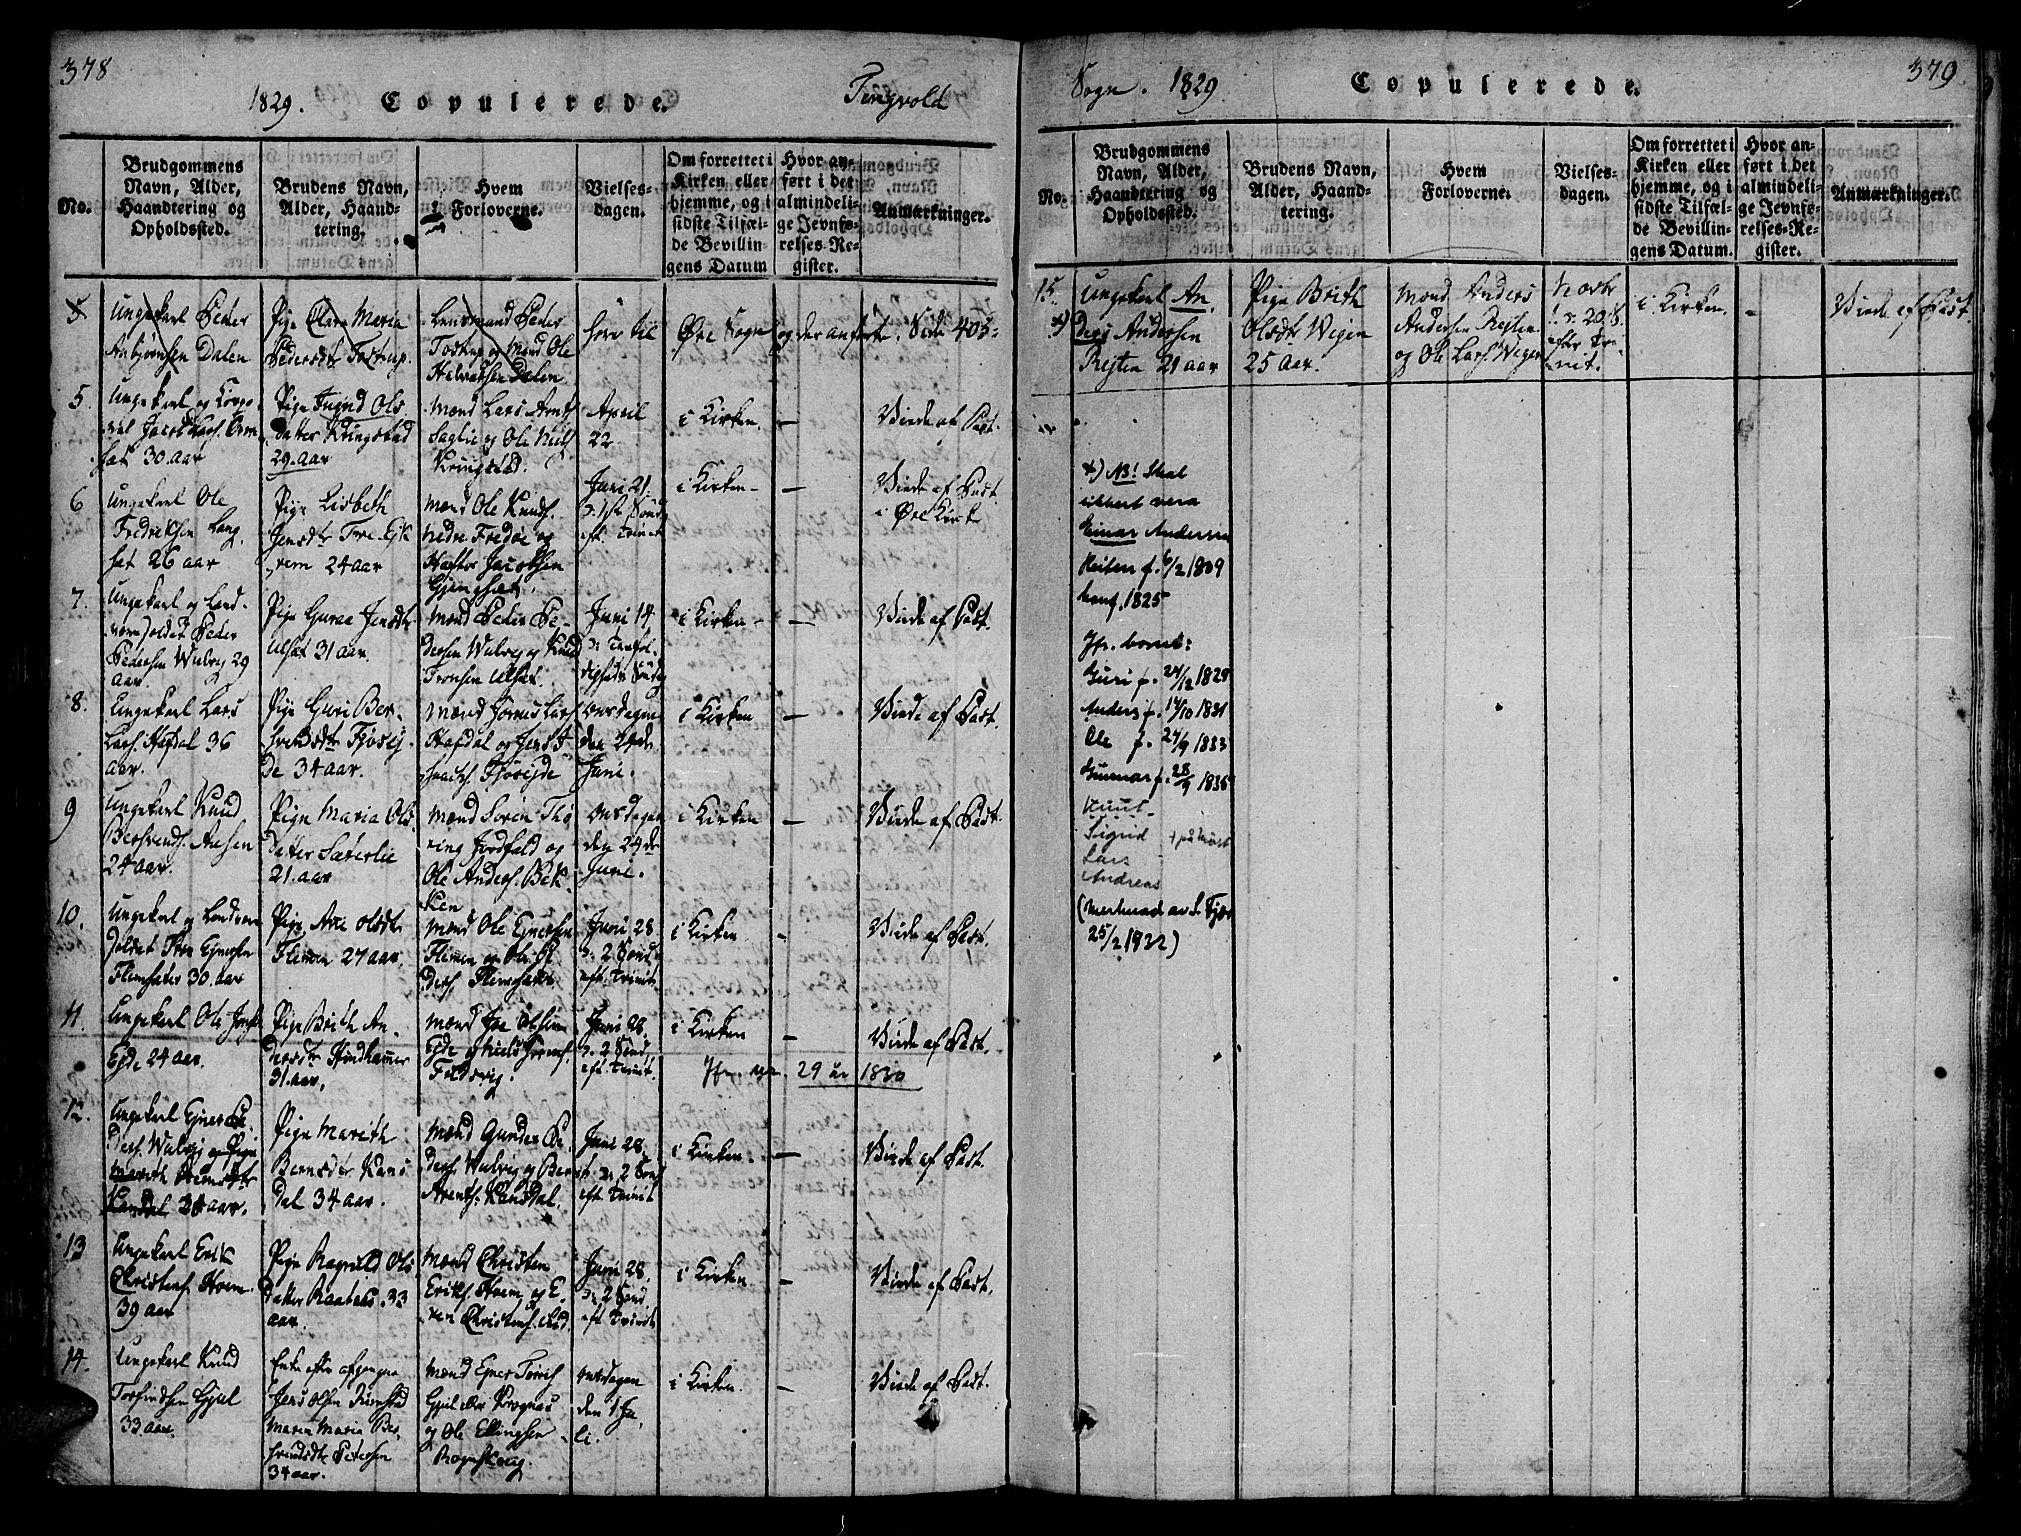 378
1829. Copulerede. Tingvold
No.
Brudgommens
Navn, Alder,
Haandtering og
Opholdssted.
Brudens Navn,
Alder, Haand-
tering.
Hvem
Forloverne.
Vielses-
dagen.
Om forrettet i
Kirken eller
hjemme, og i
sidste Tilfæl-
de Bevillin-
gens Datum
Hvor an-
ført i det
almindeli-
ge Jevnfø-
relses-Re-
gister.
Anmærkninger.
Ungekarl Peder
Anbjørnsen Dalen
Pige Olava Maria
Pedersdtr Tostrup.
Lensmand Peder
Tostrup og Mand Ole
Halvorsen Dalen
hører til Øre Sogn og der anførte. Side 405
5.
Ungekarl og Korpo-
ral Jacob Lars. Orm-
sæt 30 aar
Pige Ingrid Ols
datter Kringstad
29. aar
Mænd Lars Arnts
Saglie og Ole Niels
Kringstad.
April
22
i Kirken. —
Viede af Past.
6
Ungekarl Ole
Fredriksen Lang-
sæt 26 aar
Pige Lisbeth
Jensdtr
24 aar
Mænd Ole Knuds.
Nedre Fredøe og
Jacobsen
Gjengsæt.
Juni 21.
eft. Trinit
i Kirken — —
Viede af Past.
i Øre Kirke
7.
Ungekarl og Land-
værnsoldat Peder
Pedersen Wulvig 29
aar.
Pige Guroe Jensdtr
Ulset 31 aar.
Mænd Peder Pe-
dersen Wulvig og Knud
Tronsen Ulset.
Juni 14.
i Kirken — —
Viede af Past.
8.
Ungekarl Lars
Lars. Hafdal 36
aar.
Pige Guri Ber-
hrendsdtr Tjøsej-
de 34 aar.
Mænd Lars
Hafdal og Jens
Tjøsejde
Onsdagen
den 24de
Juni.
i Kirken —
Viede af Past.
9
Ungekarl Knud
Berhrends. Aasen
24 aar.
Pige Maria Ols
datter Sæterlie
21. aar
Mænd Sören Tho
ring Jordfald og
Ole Anders. Bæk-
ken
Onsdagen
den 24de
Juni.
i Kirken —
Viede af Past.
10.
Ungekarl og Landværn
soldat Tron Ejnersen
Flemsæter 30. aar
Pige Ane Olsdtr
Flemen 27 aar.
Mænd Ole Ejnersen
Flemen og Ole Pe
ders. Flemsæter
Juni 28
2 Sønd.
eft. Trinit.
i Kirken -
Viede af Past.
11.
Ungekarl Ole
Ejde 24 aar.
Pige Brith An-
dersdtr Hindhammer
31. aar.
Mænd Joe Olsen
Ejde og Niels
Juni 28.
2 Sønd.
eft. Trinit.
i Kirken —
Viede af Past.
29 år 1830
12.
Ungekarl Ejner Pe
ders. Wulvig og Pige
Marith Berntsdtr
Kansdal 28 aar.
Pige Marith
Berntsdtr Kans
dal 34 aar.
Mænd Gunder Pe
ders. Wulvig og Bernt
Arents. Kansdal.
Juni 28.
2 Sønd
eft. Trinit
i Kirken. —
Viede af Past.
13
Ungekarl Erik
Christens. Hoem
39 aar
Pige Ragnild Ols
datter 33
aar.
Mænd Christen
Eriks. Hoem og E-
Christens.
Juni 28.
2 Sønd
eft. Trinit
i Kirken —
Viede af Past.
14.
Ungekarl Knud
Torfindsen Gjøl
33. aar.
Enke efter afgangne
Jens Olsen
Maren Maria Ber-
hrendsdtr Petersen
34 aar.
Mænd Ejner
og Ole Ellingsen
Rognskoug.
Onsdagen
den 1 Ju-
li.
i Kirken. —
Viede af Past.
379
Sogn. 1829 Copulerede.
No.
Brudgommens
Navn, Alder,
Haandtering og
Opholdssted.
Brudens Navn,
Alder, Haand-
tering.
Hvem
Forloverne.
Vielses-
dagen.
Om forrettet i
Kirken eller
hjemme, og i
sidste Tilfæl-
de Bevillin-
gens Datum.
Hvor an-
ført i det
almindeli-
ge Jevnfø-
relses-Re-
gister.
Anmærkninger.
15.
x)
Ungekarl An-
ders Andersen
Rejten 21 aar
Pige Brith
Olsdtr Wegen
25 aar.
Mænd Anders
Andersen Rejten
og Ole Lars. Wegen
Novbr
1. 20 S.
efter Tri-
nit.
i Kirken. -
Viede af Past.
x) NB! Skal
sikkert vera
Einar Andersen
Reiten f. 6/2 1809
konf. 1825
Jfr. borni:
Guri f. 24/12 1829
Anders f. 14/10 1831
Ole f. 27/9 1833
Gunnar f. 28/9 1836
Knut
Sigrid
Lars
Andreas
(Merknad av S. Tjær
25/2 1932)